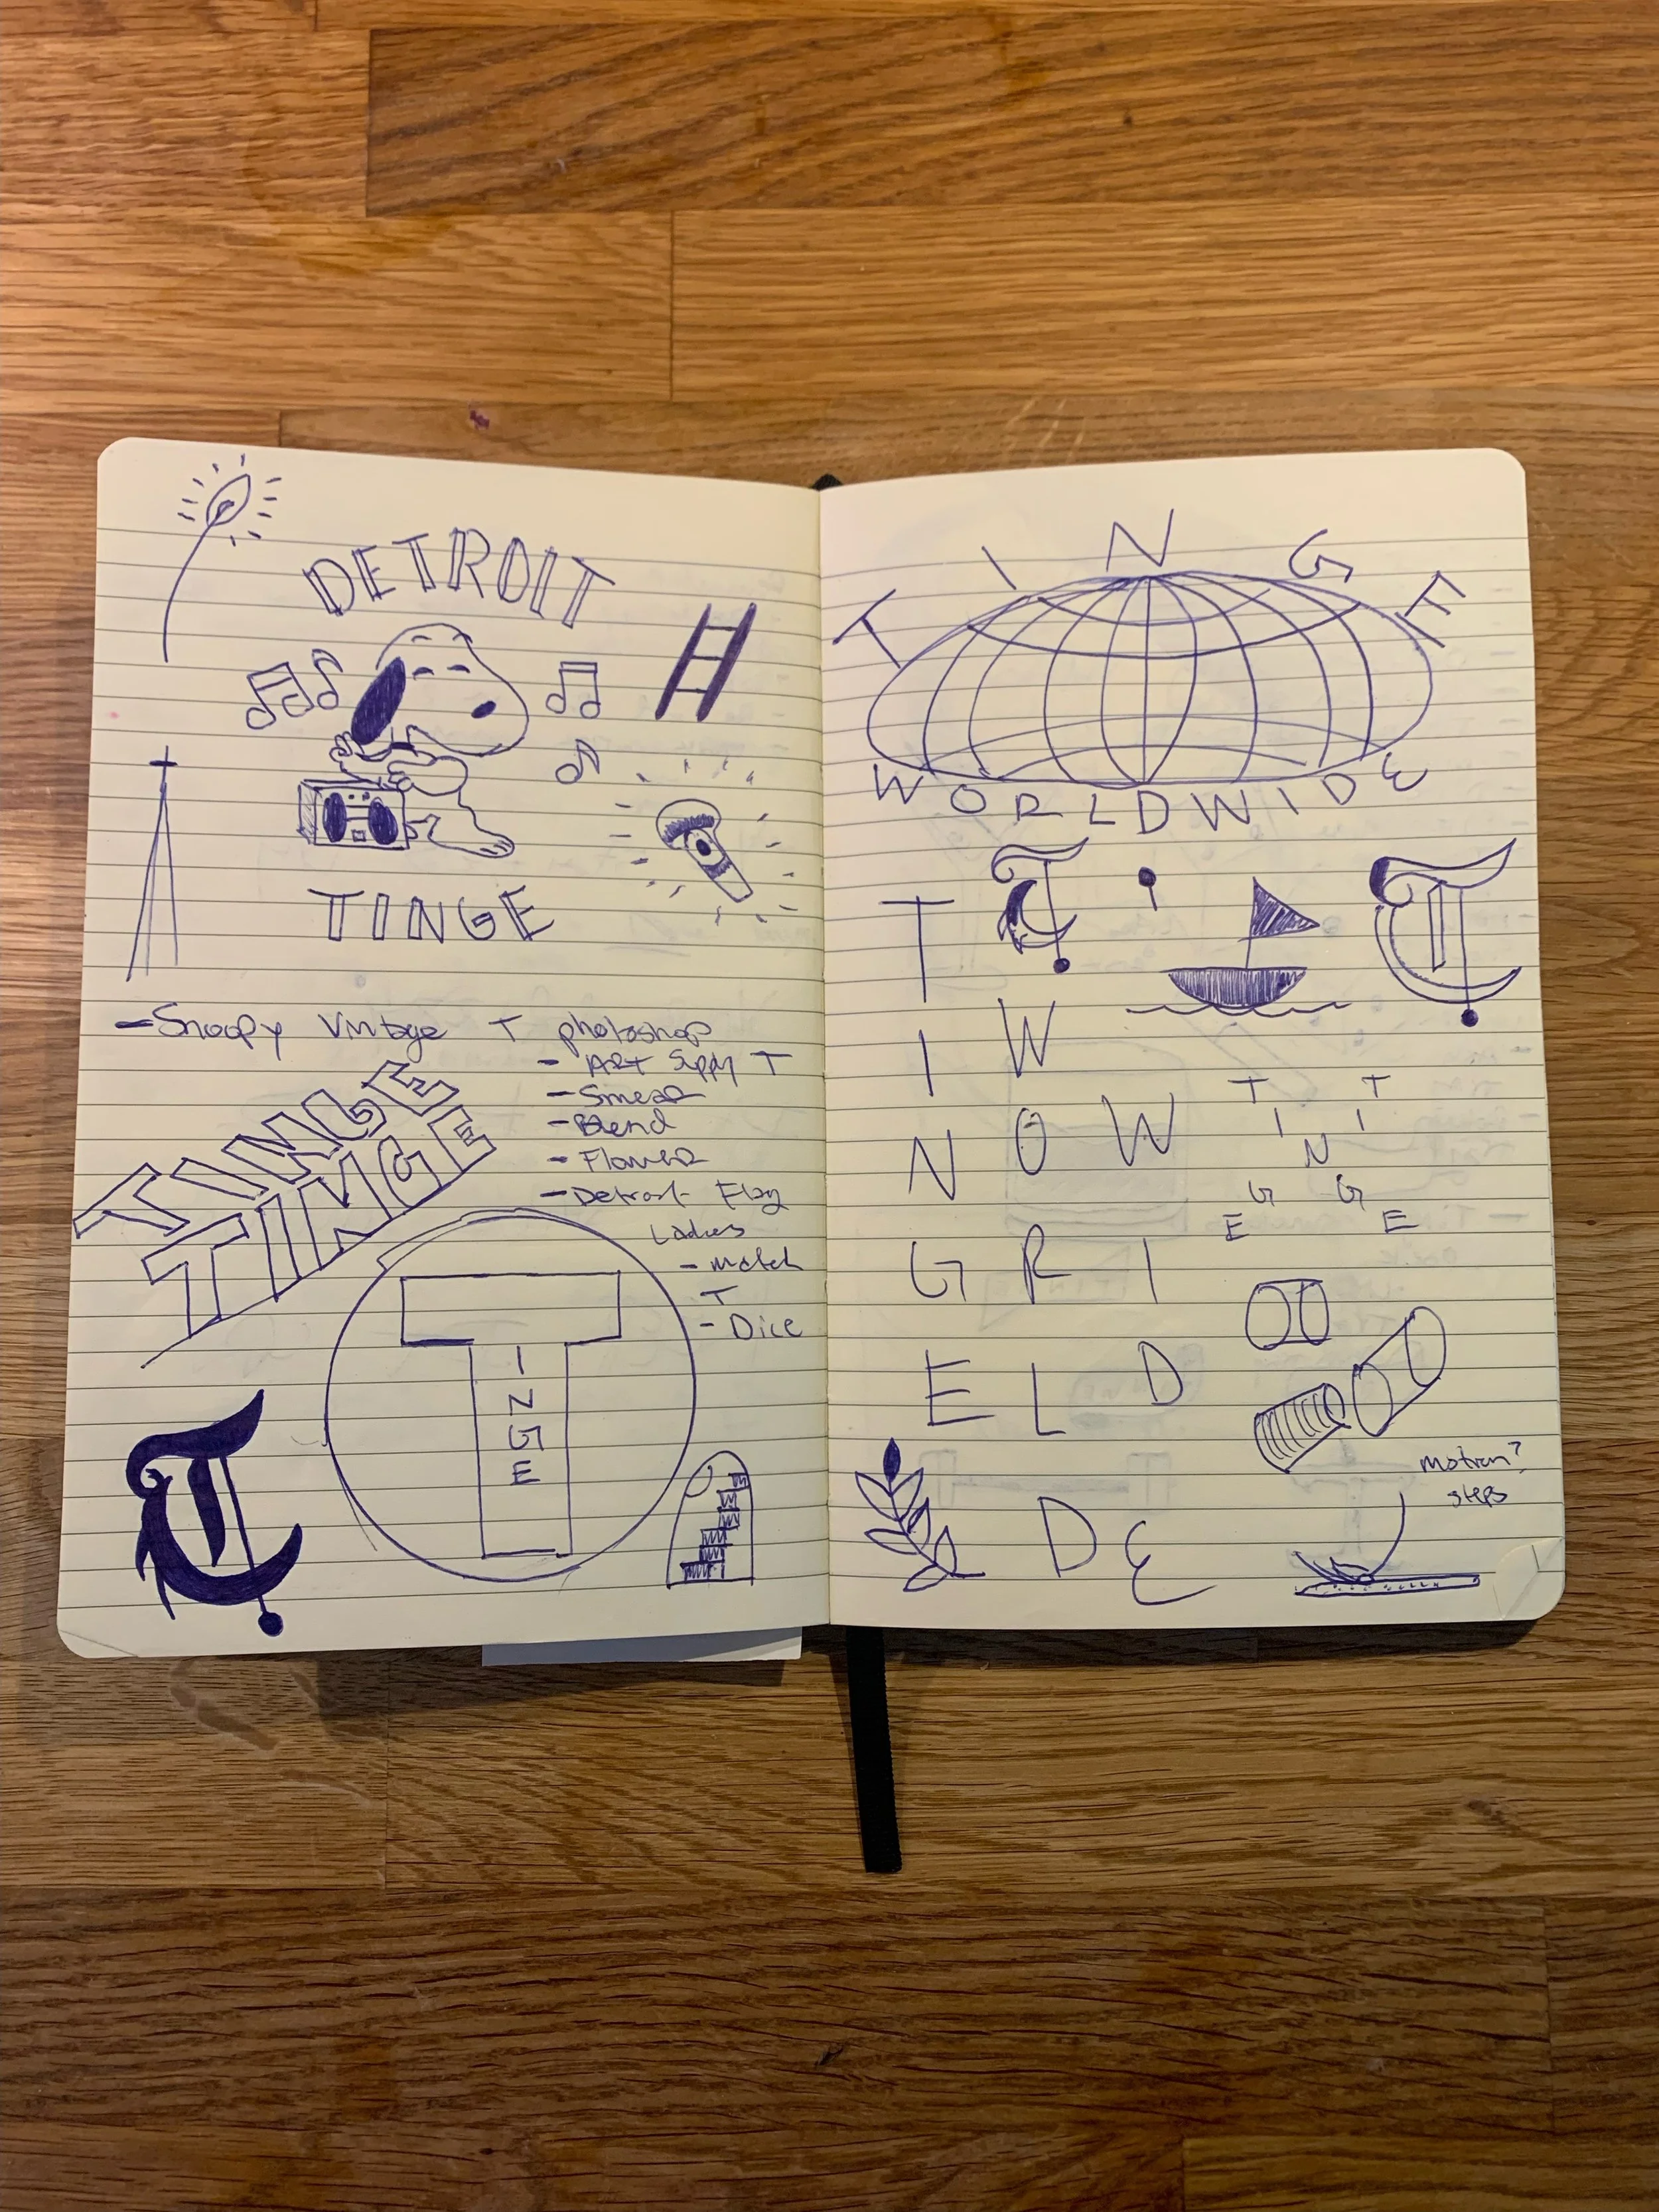 DETROIT
TINGE
- Snoopy Vintage T photoshop
- ART Supply T
- Smear
- Blend
- Flower
- Detroit Flag
Ladies
- Match
T
- Dice
TINGE
TINGE
T
I
N
G
E
T
TINGE
WORLDWIDE
T T i T
I W
N O W
G R I
E L D
D E
T T
I I
N
G G
E E
motion?
steps